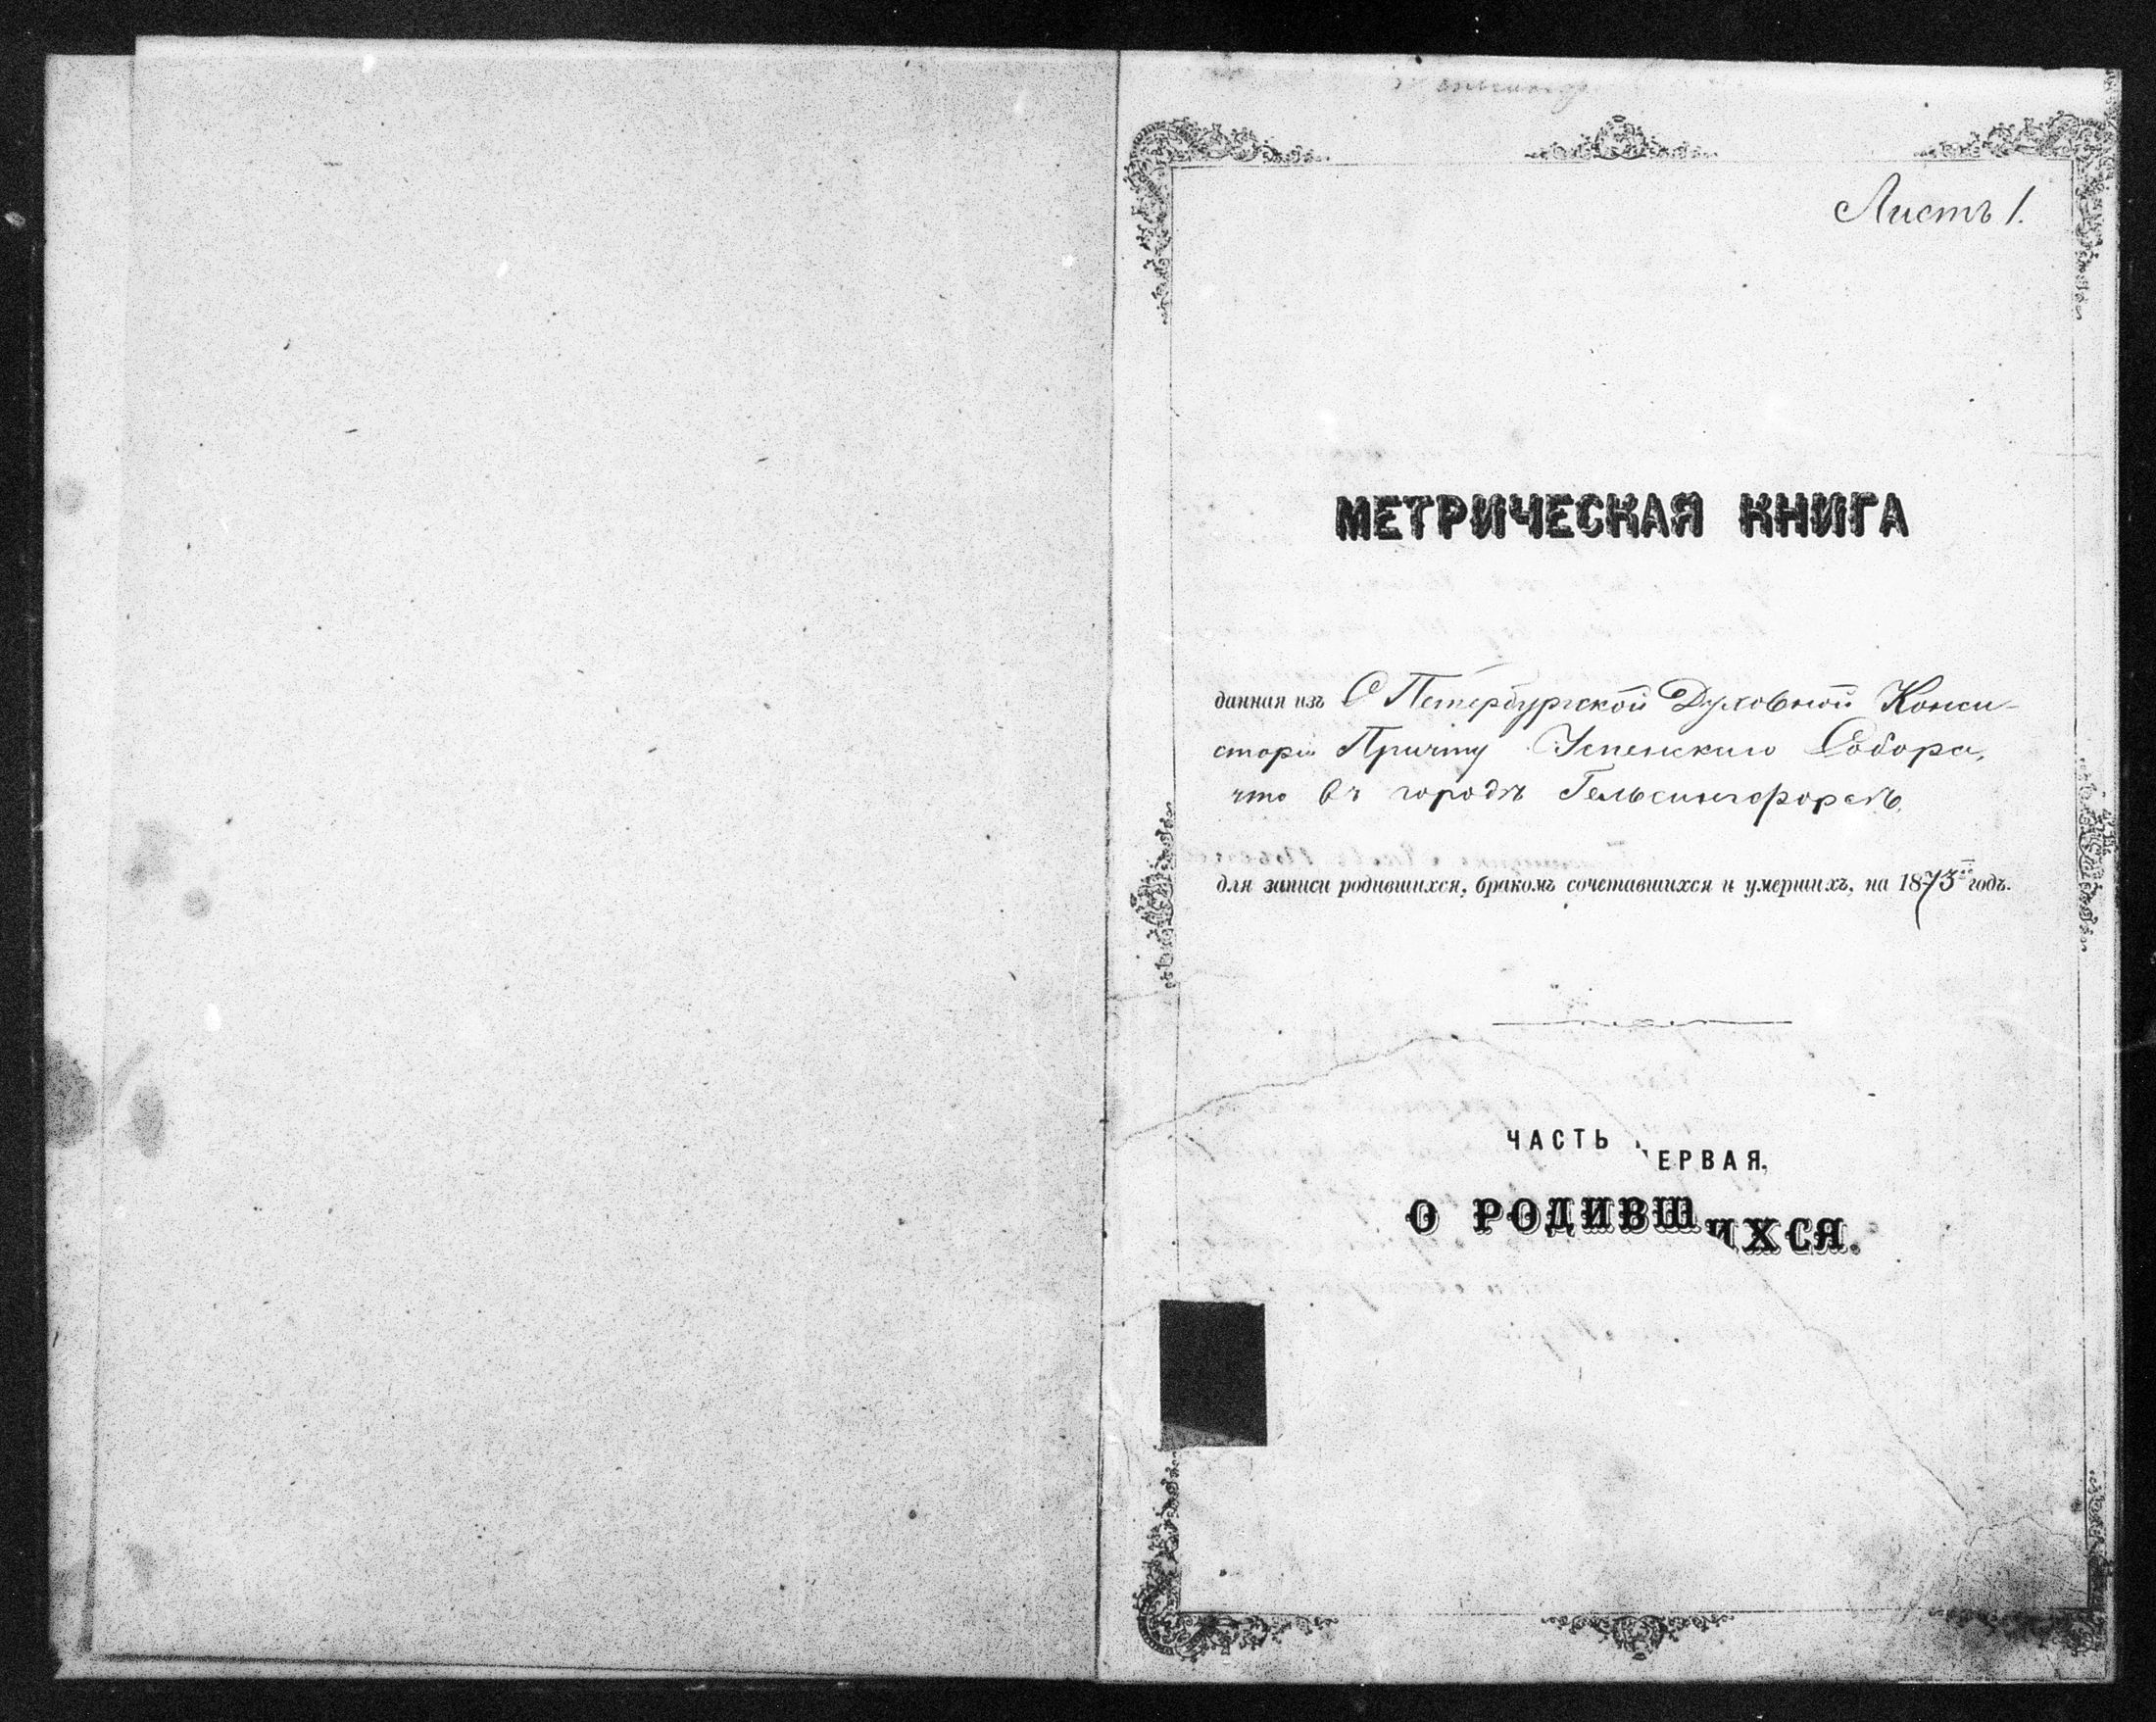 Листъ 1.
МЕТРИЧЕСКАЯ КНИГА
данная изъ С Петербургской Духовной Конси-
сторіи Причту Успенскаго Собора,
что въ городѣ Гельсингфорсѣ,
для записи родившихся, бракомъ сочетавшихся и умершихъ, на 1873ій годъ.
ЧАСТЬ ПЕРВАЯ.
О РОДИВШИХСЯ.